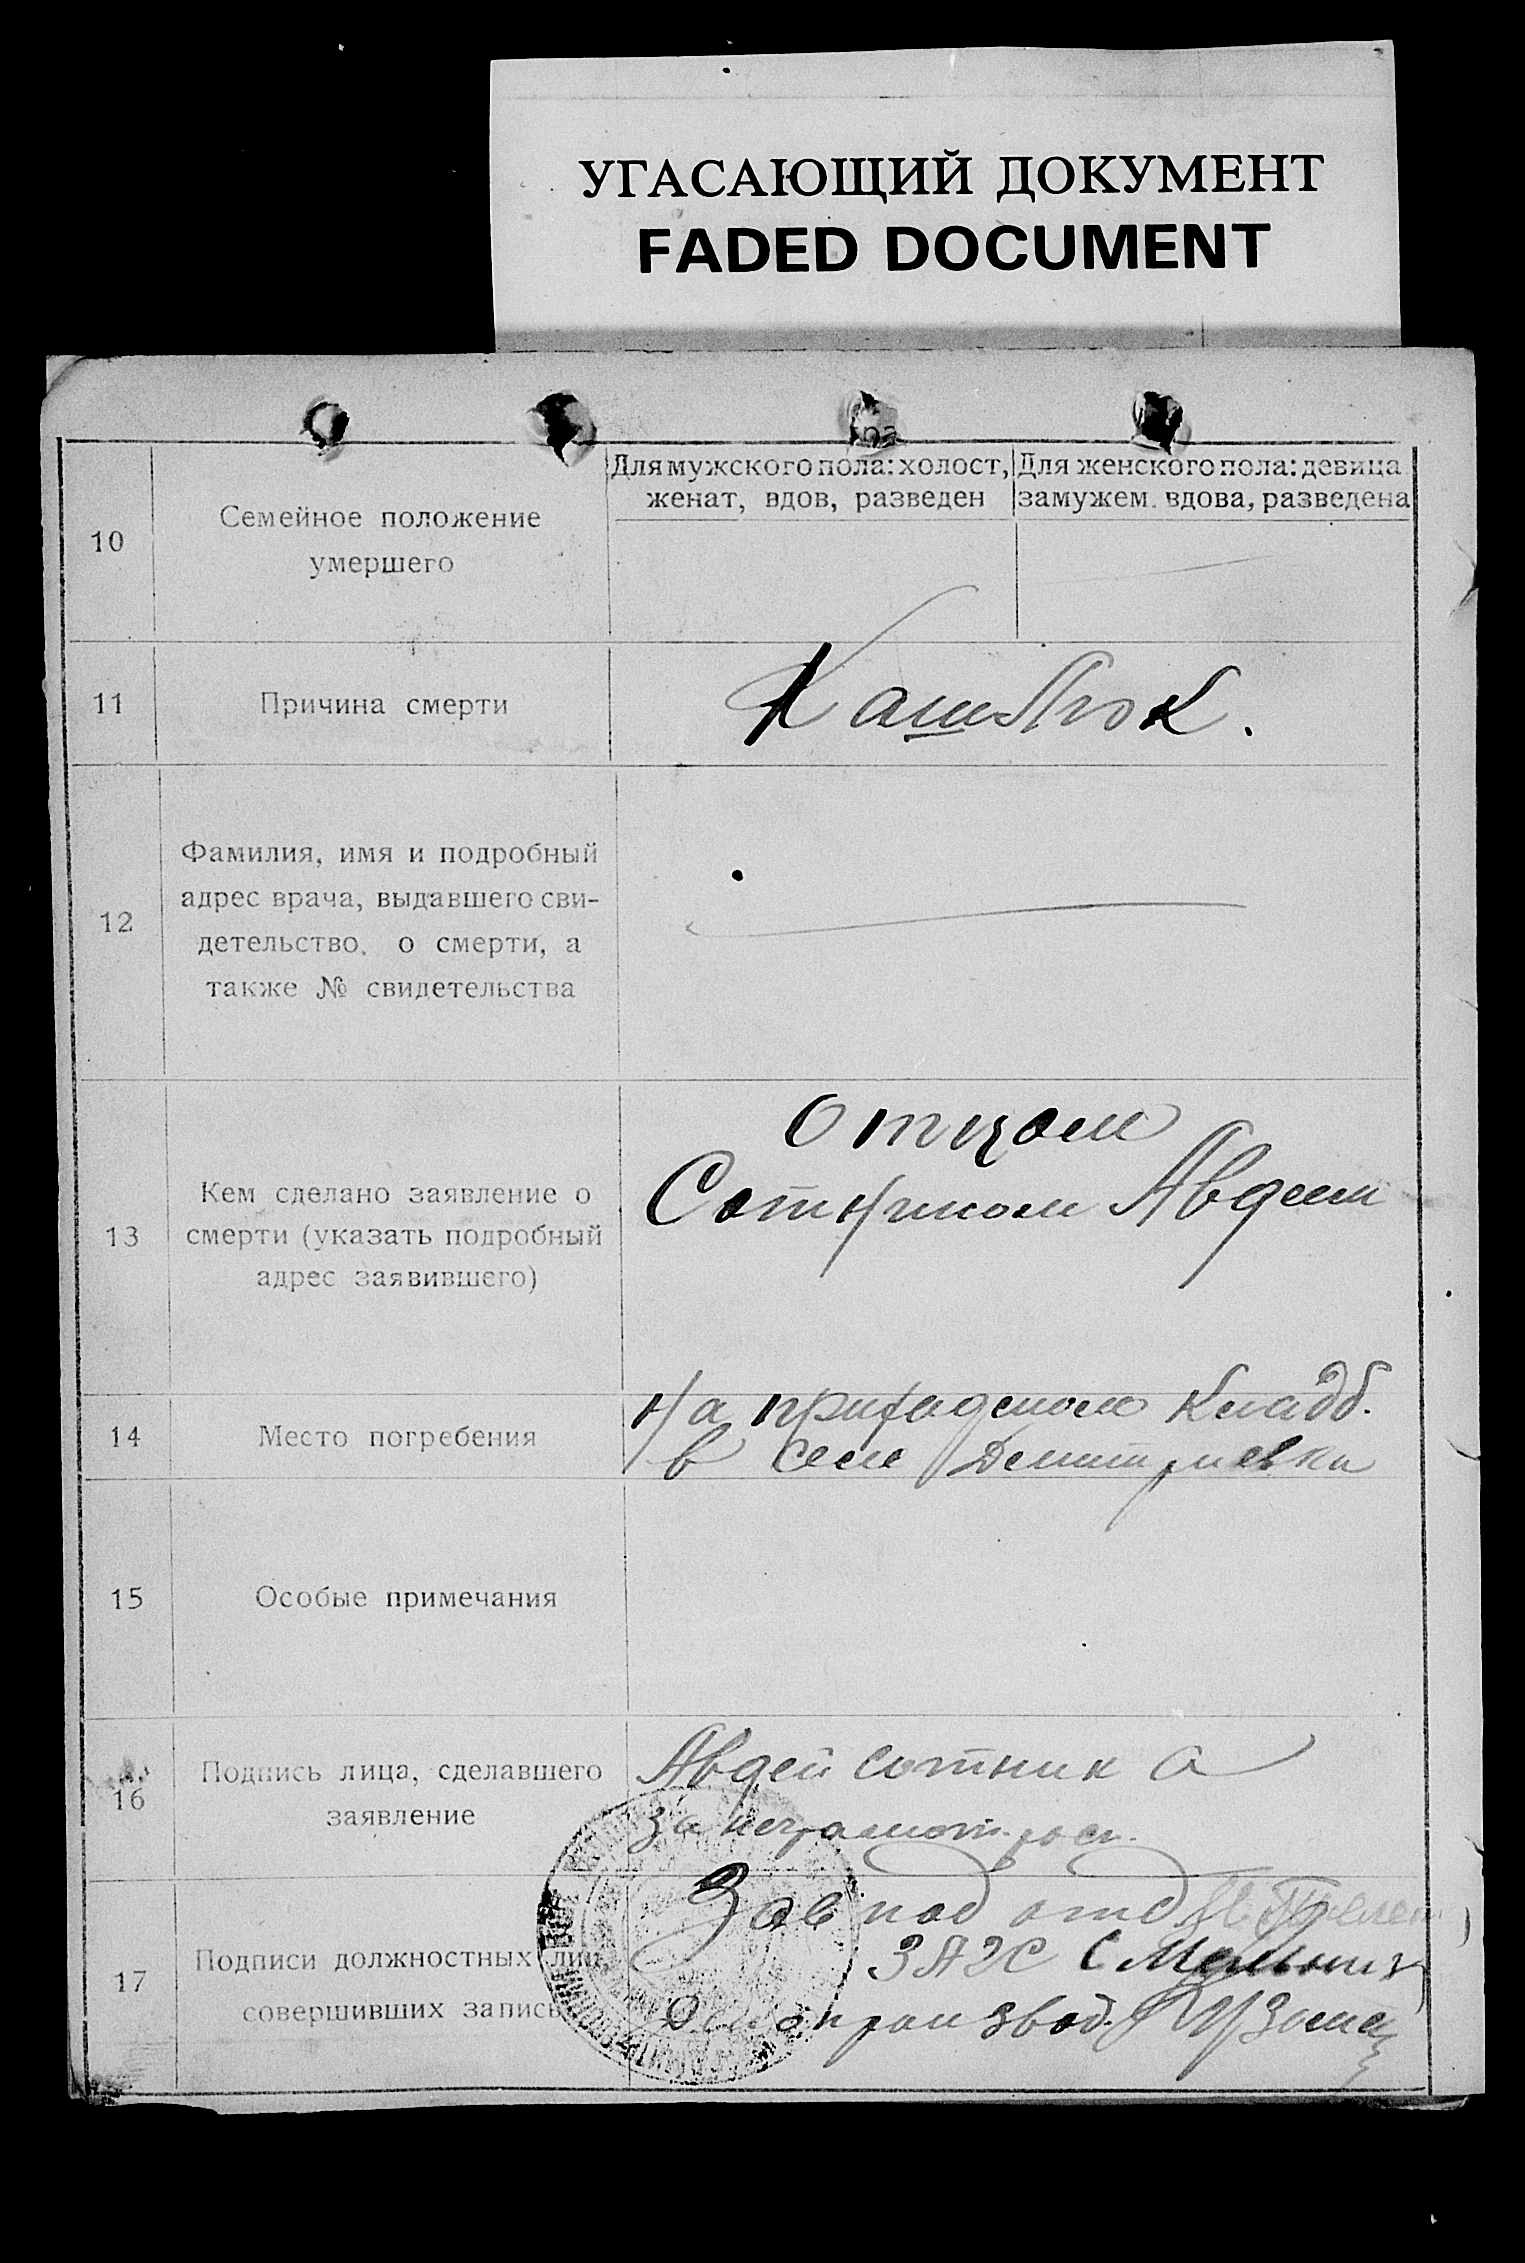 УГАСАЮЩИЙ ДОКУМЕНТ
FADED DOCUMENT
10
Семейное положение
умершего
Для мужского пола: холост,
женат, вдов, разведен
Для женского пола: девица
замужем. вдова, разведена
11
Причина смерти
Кашлюк.
12
Фамилия, имя и подробный
адрес врача, выдавшего сви-
детельство. о смерти, а
также № свидетельства
13
Кем сделано заявление о
смерти (указать подробный
адрес заявившего)
Отцом
Сотником Авдеем
14
Место погребения
На приходском кладб.
в селе Демитриевки
15
Особые примечания
16
Подпись лица, сделавшего
заявление
Авдей сотник а
за неграмотн.
17
Подписи должностных лиц,
совершивших запись
Зав под отд
ЗАГС
Делопроизвод.